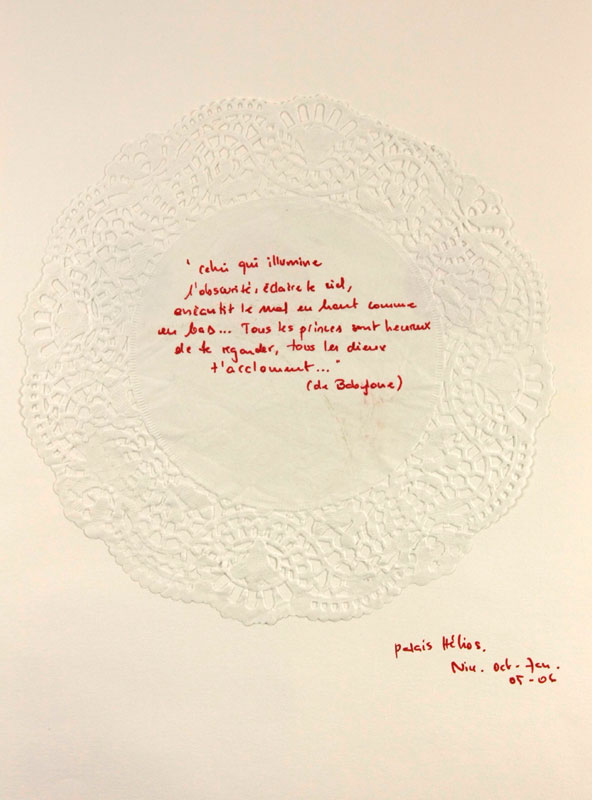 " Celui qui illumine
l'obscurité, éclaire le ciel,
anéantit le mal en haut comme
en bas... Tous les princes sont heureux
de te regarder, tous les dieux
t'acclament... "
(de Babylone)
Palais Hélios.
Nice. Oct - Jan.
05 - 06